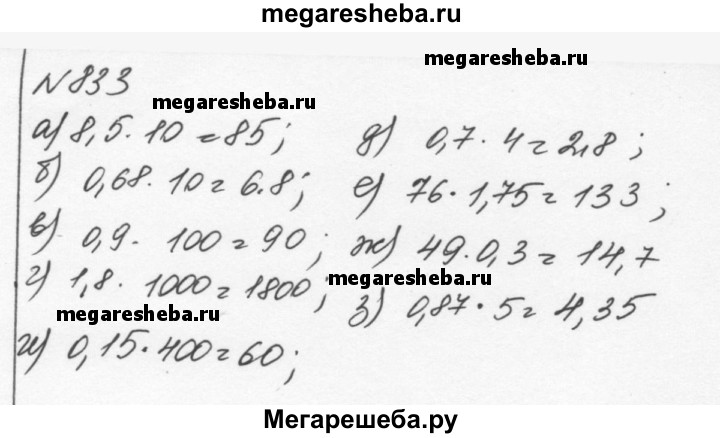 megaresheba.ru
megaresheba.ru
№ 833
megaresheba.ru
а) 8,5 · 10 = 85;
б) 0,68 · 10 = 6.8;
в) 0,9 · 100 = 90;
г) 1,8 · 1000 = 1800;
megaresheba.ru
и) 0,15 · 400 = 60;
д) 0,7 · 4 = 2,8;
е) 76 · 1,75 = 133;
ж) 49 · 0,3 = 14,7
megaresheba.ru
з) 0,87 · 5 = 4,35
Мегарешеба.ру